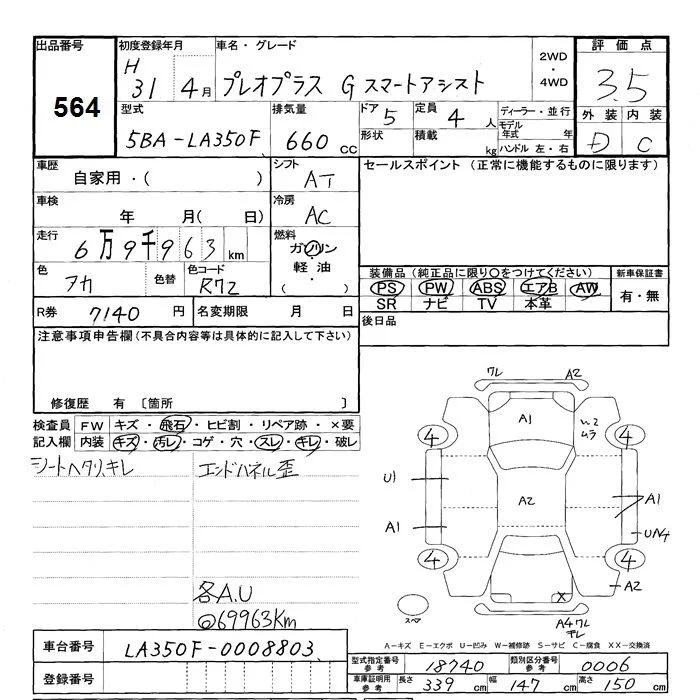 出品番号
564
初度登録年月
H
31 4月
車名・グレード
プレオプラス G スマートアシスト
2WD
・
4WD
評価点
3.5
外装 内装
D C
型式
5BA-LA350F
排気量
660 CC
ドア 5
定員 4 人
形状
積載 kg
ディーラー・並行
モデル
年式 年
ハンドル 左・右
車歴
自家用・( )
シフト
AT
セールスポイント (正常に機能するものに限ります)
車検
年 月( 日)
冷房
AC
走行
6万9千963km
燃料
ガソリン
軽油・
( )
色
アカ
色替
色コード
R72
装備品(純正品に限り〇をつけてください)
PS PW ABS エアB AW
SR ナビ TV 本革
新車保証書
有・無
R券 7140 円
名変期限 月 日
後日品
注意事項申告欄(不具合内容等は具体的に記入して下さい)
修復歴 有 〔箇所 〕
検査員
記入欄
FW キズ・飛石・ヒビ割・リペア跡・×要
内装 キズ・汚レ・コゲ・穴・スレ・キレ・破レ
シートヘタリ、キレ
エンドパネル歪
各A.U
@69963Km
ワレ A2
A1
ムラ
4 4
U1
A2
A1
A1
4 4
A2
X
スペア
A4ワレ
A-キズ E-エクボ U-凹み W-補修跡 S-サビ C-腐食 XX-交換済
車台番号 LA350F-0008803
登録番号
型式指定番号
参考
18740
類別区分番号
参考
0006
車庫証明用
参考
長さ 339 cm
幅 147 cm
高さ 150 cm